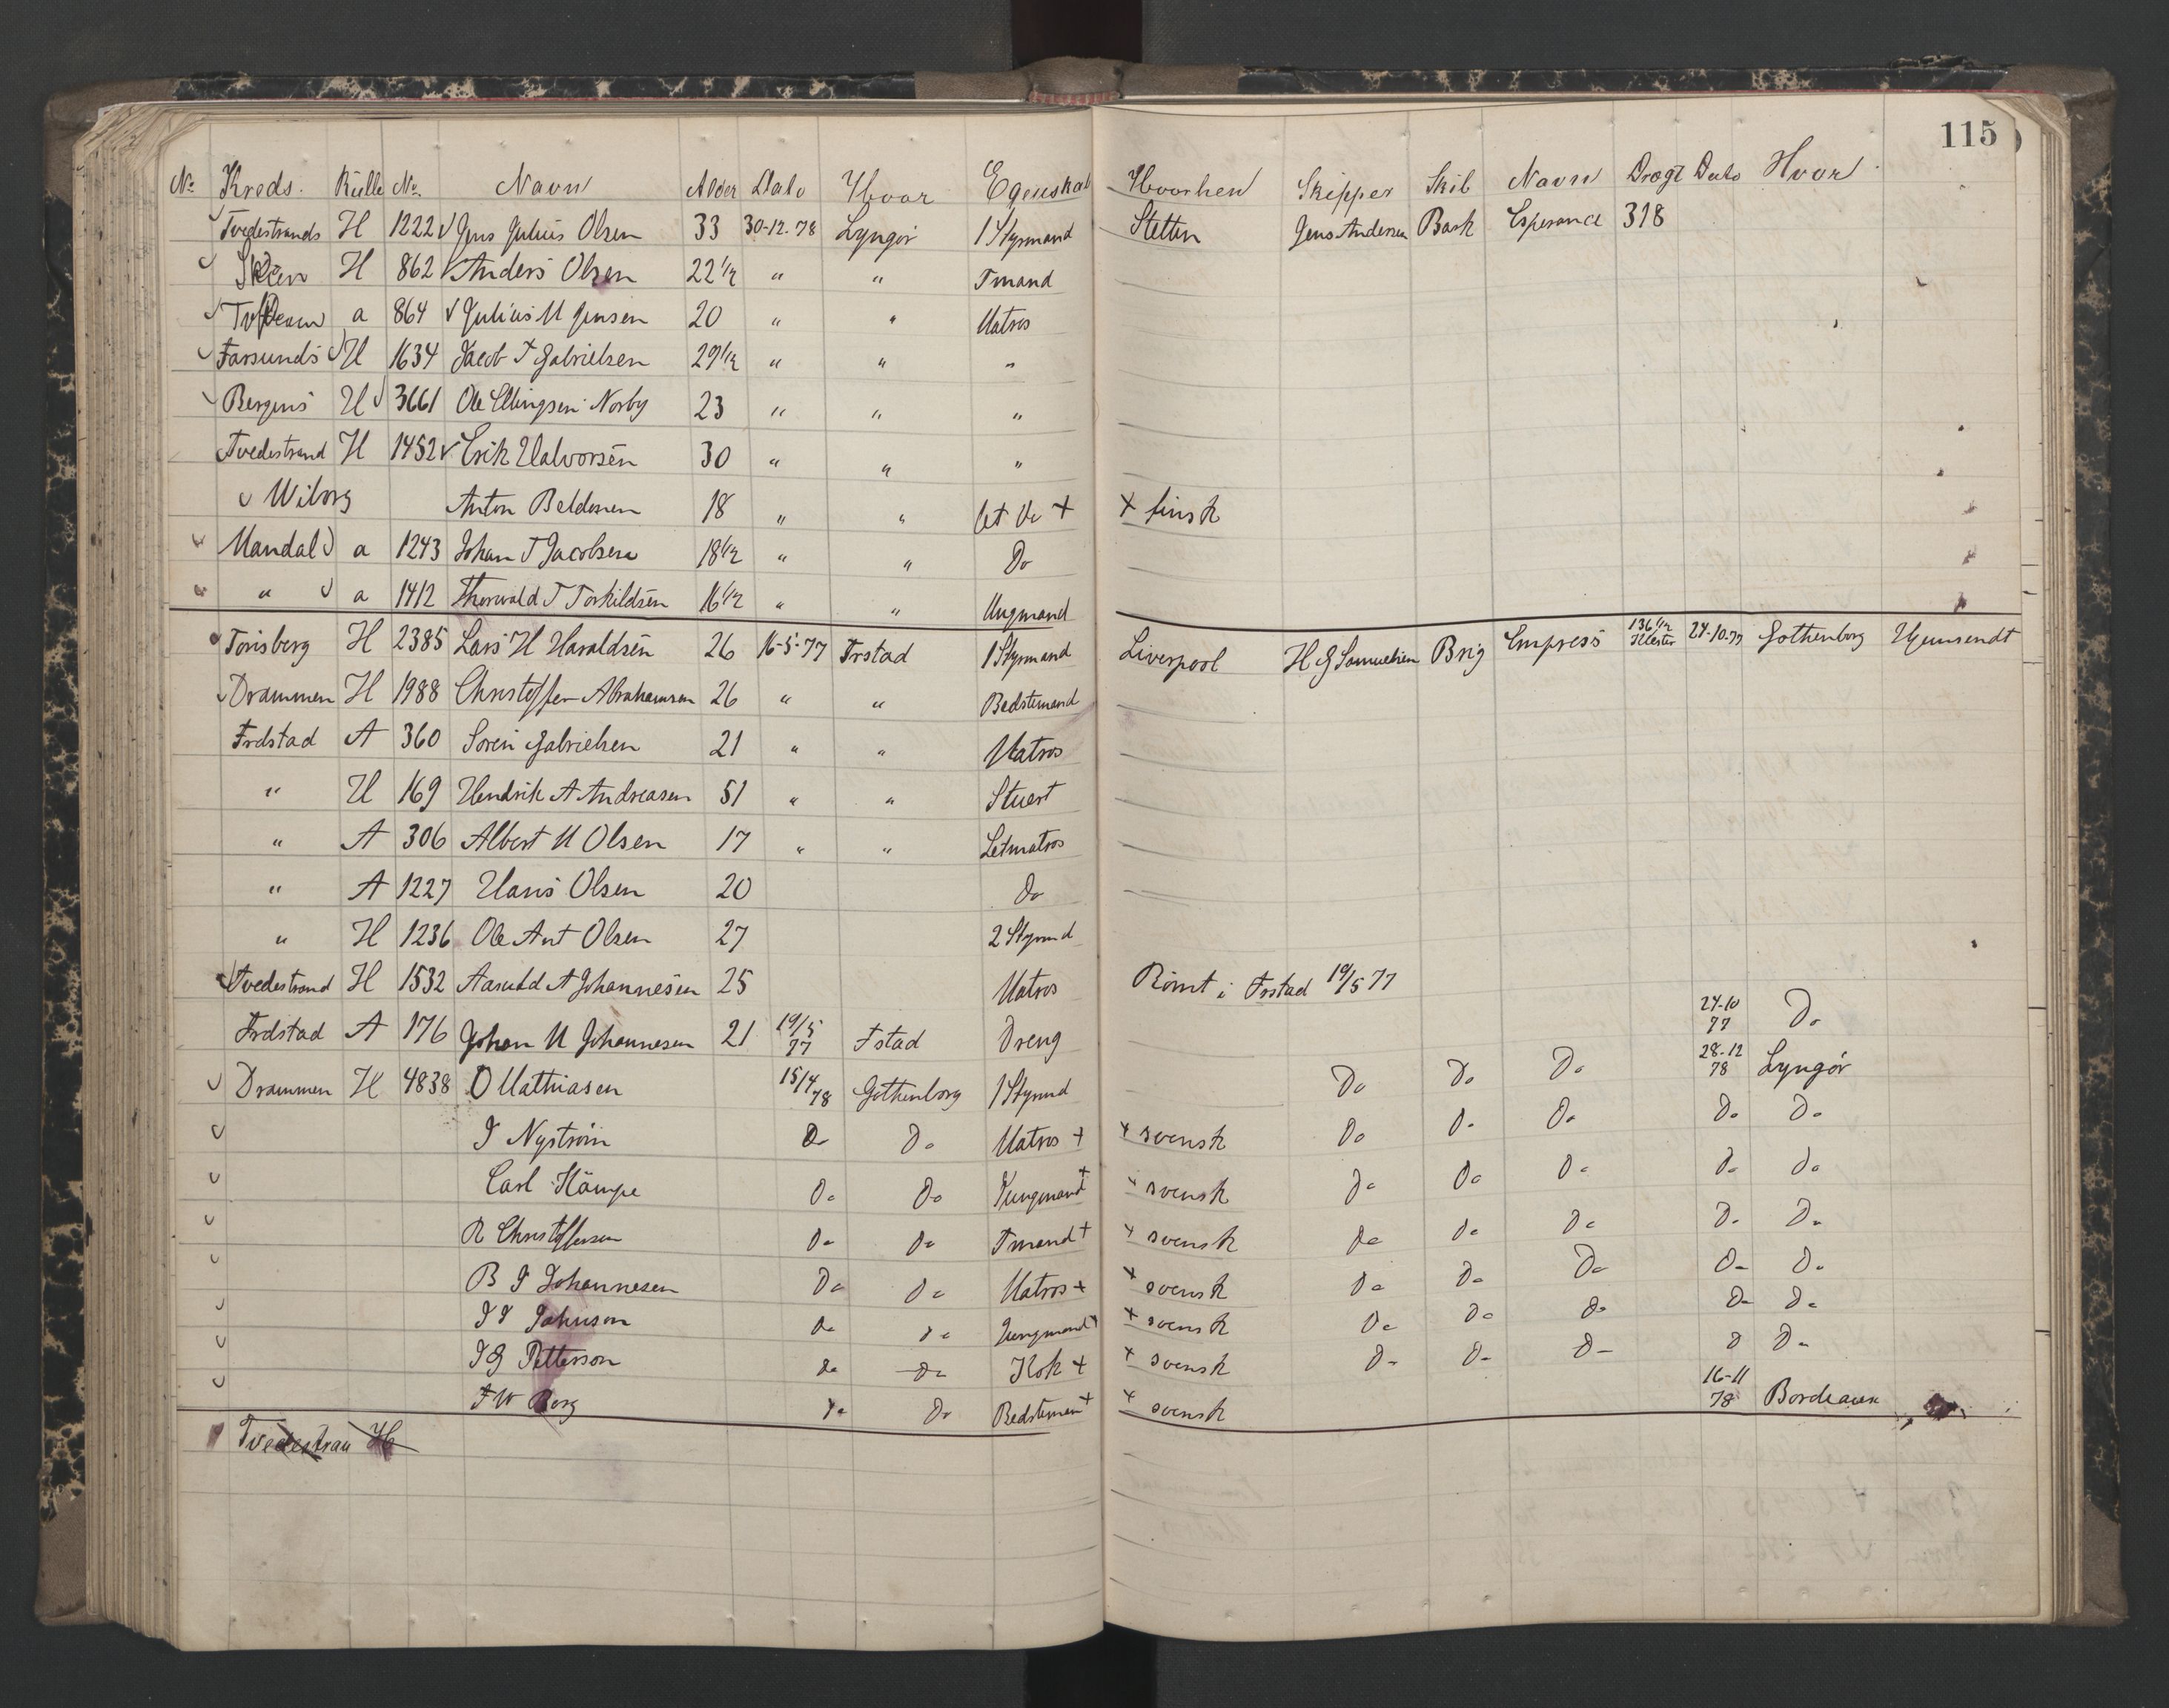 115
No Kreds. Rulle No. Navn Alder Dato Hvor Egenskab Hvorhen Skipper Skib Navn Drægt Dato Hvor
Tvedestrands H 1222 Jens Julius Olsen 33 30-12-78 Lyngør 1 Styrmand Stettin Jens Andersen Bark Esperance 318
Skien H 862 Anders Olsen 22 1/2 " " Tmand
a 864 Julius M Jensen 20 " " Matros
Farsunds H 1634 Jacob T Gabrielsen 29 1/2 " " "
Bergens H 3661 Ole Ellingsen Norby 23 " " "
Tvedestrand H 1452 Erik Halvorsen 30 " " "
Wiborg Anton Beldonen 18 " " Let Do + + finsk
Mandal a 1243 Johan T Jacobsen 18 1/2 " " Do
" a 1412 Thorvald T Torkildsen 16 1/2 " " Ungmand
Tønsberg H 2385 Lars H Haraldsen 26 16-5-77 Frstad 1 Styrmand Liverpool H G Samuelsen Brig Empress 136 1/2 Klester 24-10-77 Gothenborg Hjemsendt
Drammen H 1988 Christoffer Abrahamsen 26 " " Bedstemand
Frdstad A 360 Soren Gabrielsen 21 " " Matros
" H 169 Hendrik A Andreasen 51 " " Stuert
" A 306 Albert M Olsen 17 " " Letmatros
" A 1227 Hans Olsen 20 Do
" H 1236 Ole Ant Olsen 27 2 Styrmd
Tvedestrand H 1532 A Johannesen 25 Matros Rømt i Frstad 19/5 77
Frdstad A 176 Johan M Johannesen 21 19/5 77 Fstad Dreng 24-10 77 Do
Drammen H 4838 O Mathiasen 15/4 78 Gothenborg 1 Styrmd Do Do Do 28-12 78 Lyngør
I Nystrøm Do Do Matros + + svensk Do Do Do Do Do
Carl Hämpe Do Do Jungmand + + svensk Do Do Do Do Do
R Christoffersen Do Do Tmand + + svensk Do Do Do Do Do
B I Johannesen Do Do Matros + + svensk Do Do Do Do Do
I I Johnson Do Do Jungmand + + svensk Do Do Do Do Do
I G Petterson Do Do Kok + + svensk Do Do Do D Do
F W Berg Do Do Bedsteman + + svensk 16-11 78 Bordeaux
Tvedestran H